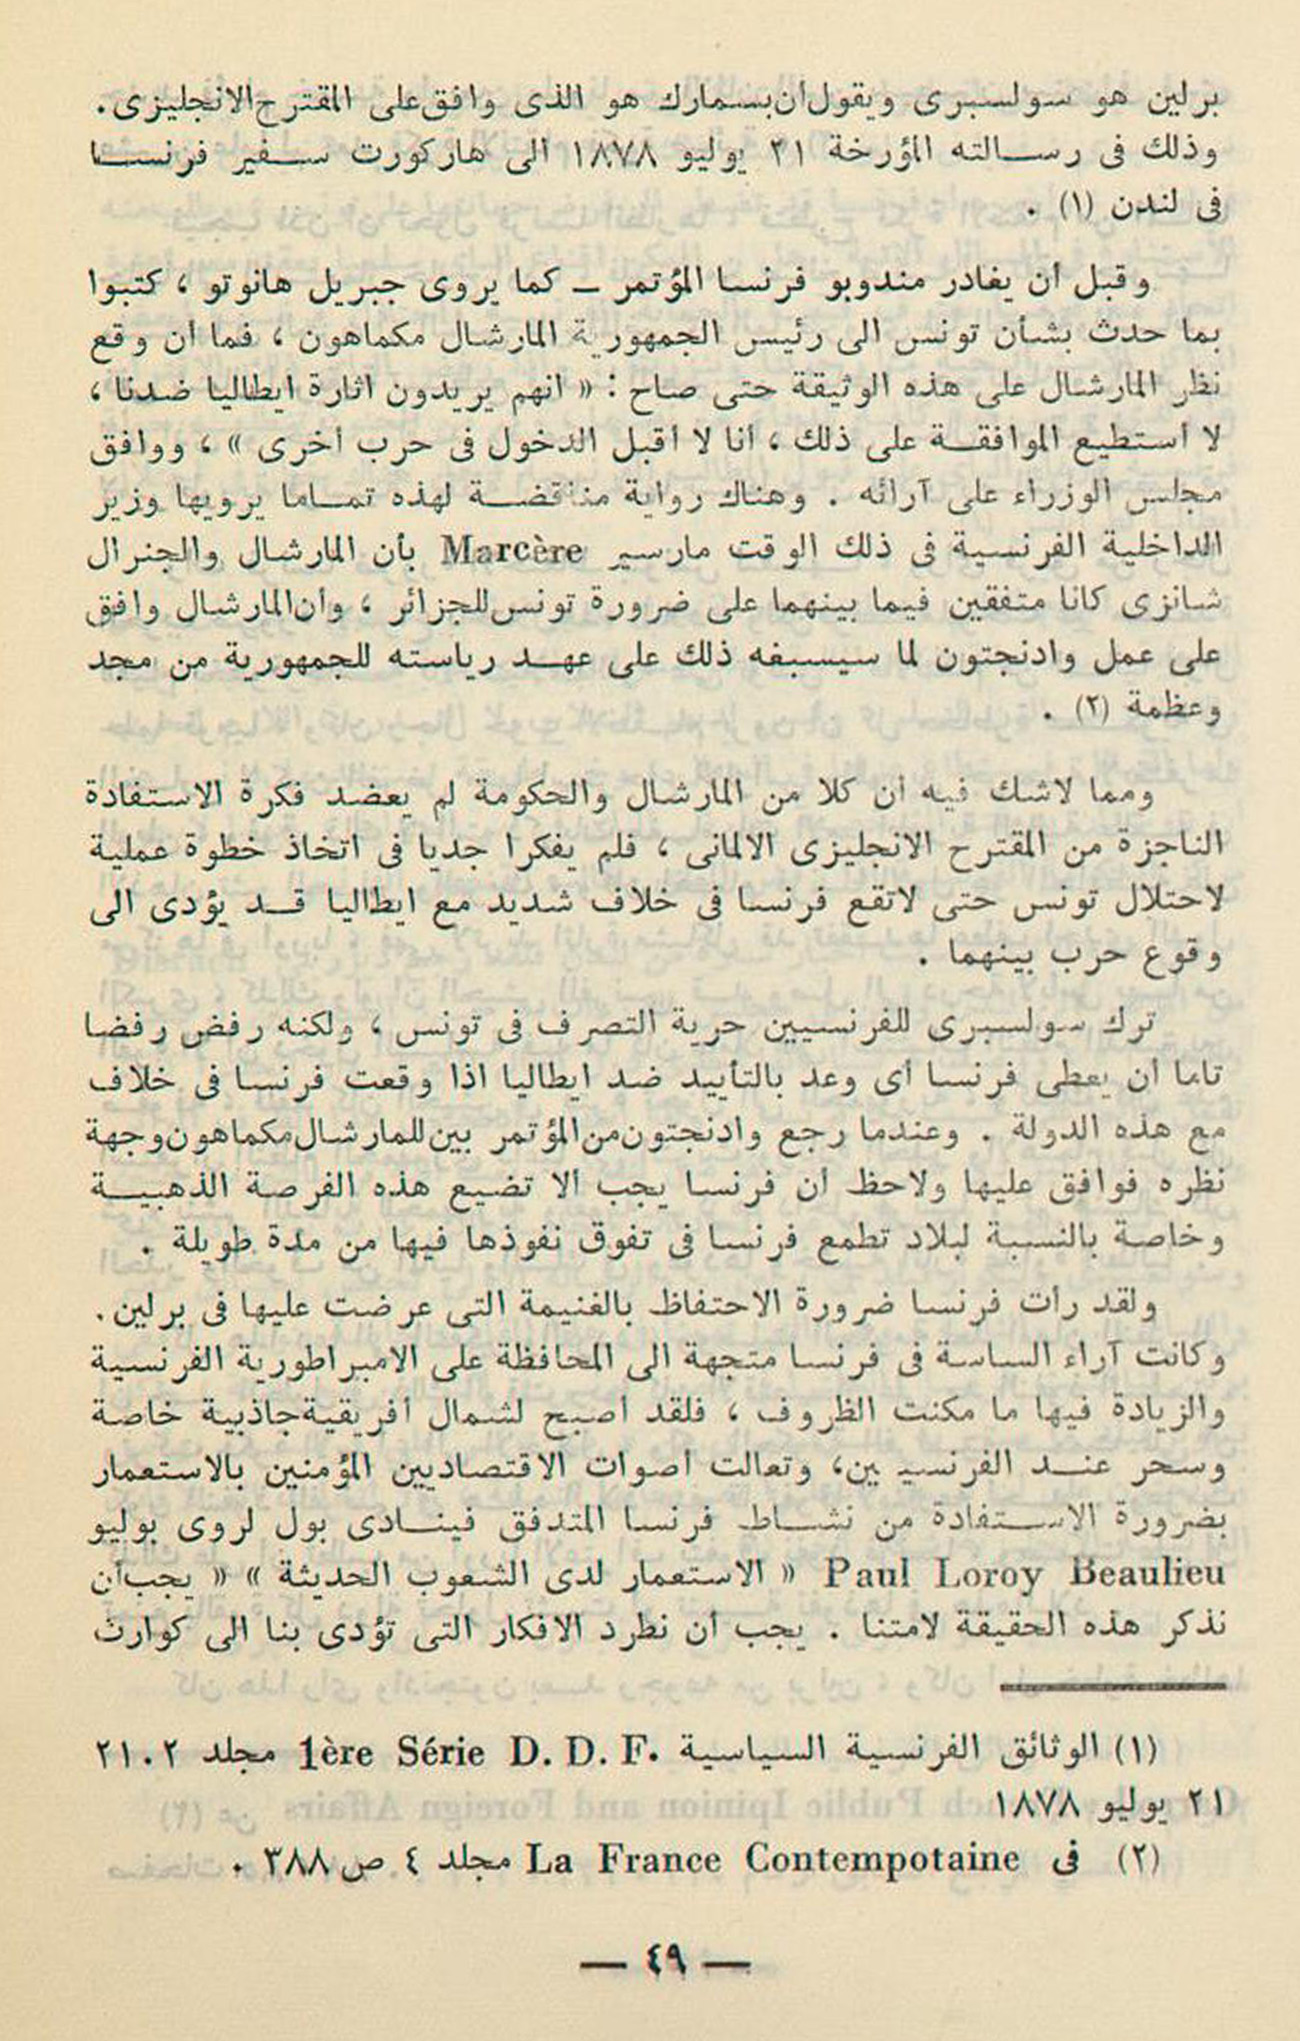 برلين هو سولسبرى ويقول ان بسمارك هو الذى وافق على المقترح الانجليزى .
وذلك فى رسالته المؤرخة ٢١ يوليو ١٨٧٨ الى هاركورت سفير فرنسا
فى لندن (١) .
وقبل أن يغادر مندوبو فرنسا المؤتمر – كما يروى جبريل هانوتو ، كتبوا
بما حدث بشأن تونس الى رئيس الجمهورية المارشال مكماهون ، فما ان وقع
نظر المارشال على هذه الوثيقة حتى صاح : « انهم يريدون اثارة ايطاليا ضدنا ،
لا أستطيع الموافقة على ذلك ، أنا لا أقبل الدخول فى حرب أخرى » ، ووافق
مجلس الوزراء على آرائه . وهناك رواية مناقضة لهذه تماما يرويها وزير
الداخلية الفرنسية فى ذلك الوقت مارسير Marcère بأن المارشال والجنرال
شانزى كانا متفقين فيما بينهما على ضرورة تونس للجزائر ، وان المارشال وافق
على عمل وادنجتون لما سيسبغه ذلك على عهد رياسته للجمهورية من مجد
وعظمة (٢) .
ومما لاشك فيه أن كلا من المارشال والحكومة لم يعضد فكرة الاستفادة
الناجزة من المقترح الانجليزى الالمانى ، فلم يفكرا جديا فى اتخاذ خطوة عملية
لاحتلال تونس حتى لاتقع فرنسا فى خلاف شديد مع ايطاليا قد يؤدى الى
وقوع حرب بينهما .
ترك سولسبرى للفرنسيين حرية التصرف فى تونس ، ولكنه رفض رفضا
تاما أن يعطى فرنسا أى وعد بالتأييد ضد ايطاليا اذا وقعت فرنسا فى خلاف
مع هذه الدولة . وعندما رجع وادنجتون من المؤتمر بين للمارشال مكماهون وجهة
نظره فوافق عليها ولاحظ أن فرنسا يجب ألا تضيع هذه الفرصة الذهبية
وخاصة بالنسبة لبلاد تطمع فرنسا فى تفوق نفوذها فيها من مدة طويلة .
ولقد رأت فرنسا ضرورة الاحتفاظ بالغنيمة التى عرضت عليها فى برلين .
وكانت آراء الساسة فى فرنسا متجهة الى المحافظة على الامبراطورية الفرنسية
والزيادة فيها ما مكنت الظروف ، فلقد أصبح لشمال أفريقية جاذبية خاصة
وسحر عند الفرنسيين، وتعالت أصوات الاقتصاديين المؤمنين بالاستعمار
بضرورة الاستفادة من نشاط فرنسا المتدفق فينادى بول لروى بوليو
Paul Loroy Beaulieu « الاستعمار لدى الشعوب الحديثة » « يجب أن
نذكر هذه الحقيقة لامتنا . يجب أن نطرد الافكار التى تؤدى بنا الى كوارث
(١) الوثائق الفرنسية السياسية 1ère Série D. D. F. مجلد ٢١٠٢
٢١ يوليو ١٨٧٨
(٢) فى La France Contempotaine مجلد ٤ ص ٣٨٨ .
— ٤٩ —